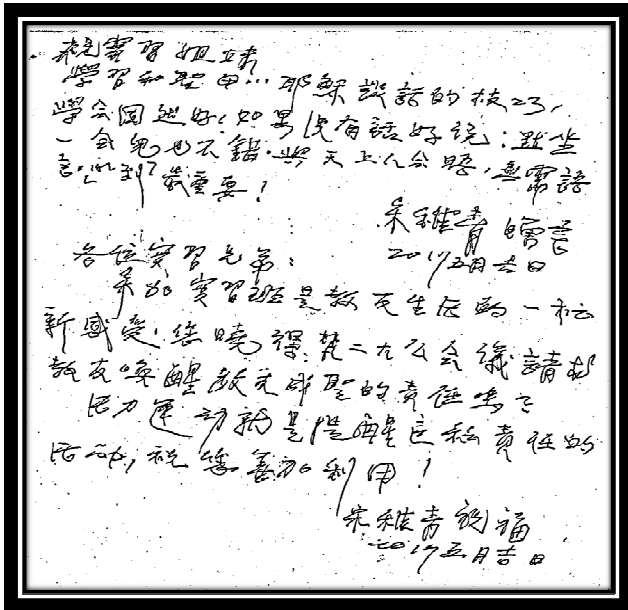 親愛實習姐妹
學習和聖母…耶穌談話的技巧,
學會固然好,如果沒有話好說;默坐
一會兒也不錯.與天上人公晤,無需語
言,心到了最重要!
朱稚青贈言
2017五月吉日
各位實習兄弟:
參加實習班是教友生活的一種
新感受!您曉得梵二大公會議請求
教友喚醒教友成聖的責任嗎?
活力運動就是提醒這種責任的
活動,祝您善加利用!
朱稚青祝福
2017五月吉日